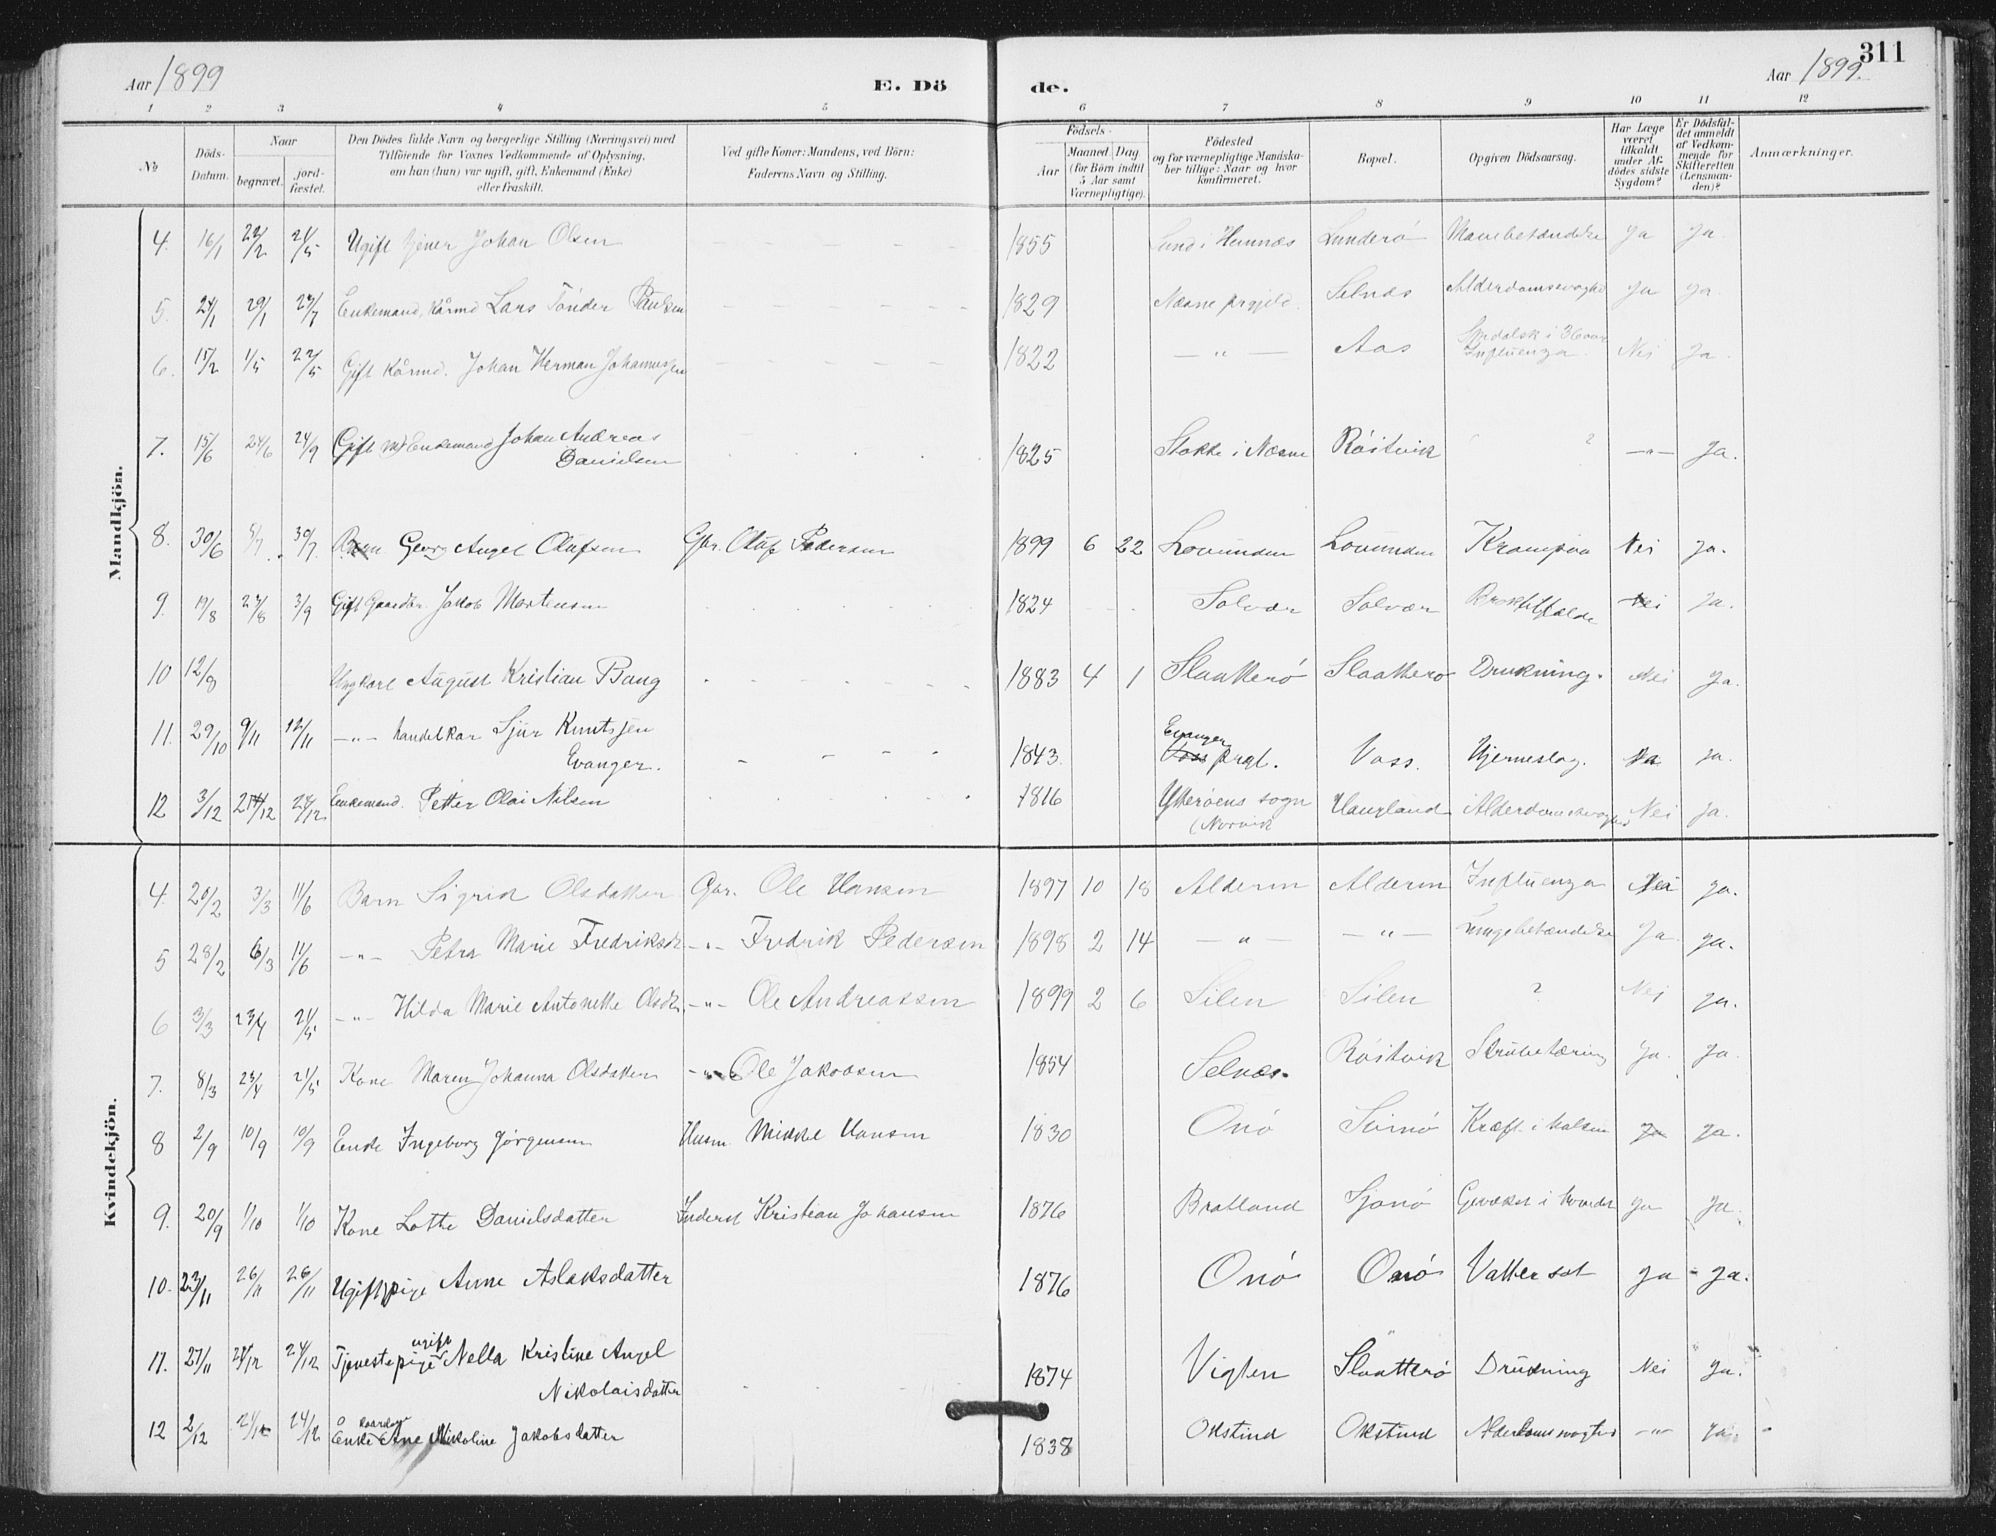 311
Aar 1899 E. Dö de. Aar 1899.
1 2 3 4 5 6 7 8 9 10 11 12
№
Döds-Datum.
Naar
begravet. jordfæstet.
Den Dödes fulde Navn og borgerlige Stilling (Næringsvei) med
Tilföiende for Voxnes Vedkommende af Oplysning,
om han (hun) var ugift, gift, Enkemand (Enke)
eller fraskilt.
Ved gifte Koner: Mandens, ved Börn:
Faderens Navn og Stilling.
Födsels-
Aar Maaned Dag
(for Börn indtil
5 Aar samt
Værnepligtige).
Födested
og for værnepligtige Mandska-
ber tillige: Naar og hvor
konfirmeret.
Bopæl.
Opgiven Dödsaarsag.
Har Læge
været
tilkaldt
under Af-
dödes sidste
Sygdom?
Er Dödsfal-
det anmeldt
af Vedkom-
mende for
Skifteretten
(Lensman-
den)?
Anmærkninger.
Mandkjön.
4. 16/1 22/2 21/5 Ugift tjener Johan Olsen 1855 Lund i Hemnæs Lunderö Mavebetændelse Ja Ja.
5. 24/1 29/1 23/7 Enkemand, Kårmd Lars Tönder Paulsen 1829 Næsne prgjeld. Selnæs Alderdomssvaghed Ja Ja.
6. 15/2 1/5 22/5 Gift Kårmd. Johan Herman Johannessen 1822 — " — Aas Spedalsk i 36 aar
Influenza. Nei Ja.
7. 15/6 24/6 24/9 Gift Enkemand Johan Andreas
Danielsen 1825 Stokke i Næsne Röitvik ? — " — Ja.
8. 30/6 8/7 30/7 Barn Georg Angel Olufsen Gbr. Oluf Pedersen 1899 6 22 Lovunden Lovunden Krampe Nei Ja.
9. 19/8 23/8 3/9 Gift Gaardbr. Jakob Mortensen 1824 Solvær Solvær Nei Ja.
10 12/8 Ungkarl August Kristian Bang 1883 4 1 Slaatterö Slaatterö Drukning. Nei Ja.
11. 29/10 9/11 12/11 — " — handelkar Sjur Knutssen
Evanger. 1843. Evanger
Voss prgl. Voss. Hjerneslag. Ja.
12 3/12 24/12 24/12 Enkemand. Petter Olai Nilsen 1816 Ytteröens sogn
Haugland Alderdomssvaghed Nei Ja.
Kvindekjön.
4. 20/2 3/3 11/6 Barn Sigrid Olsdatter Gbr. Ole Hansen 1897 10 18 Alderen Alderen Influenza Nei Ja.
5 28/2 6/3 11/6 — " — Petra Marie Fredriksdr — " — Fredrik Pedersen 1898 2 14 — " — — " — Lungebetændelse Ja Ja.
6 3/3 23/4 21/5 — " — Hilda Marie Antonette Olsdtr. — " — Ole Andreassen 1899 2 6 Silen Silen ? Nei Ja.
7. 8/3 23/4 21/5 Kone Maren Johanna Olsdatter — " — Ole Jakobsen 1854 Selnæs. Röitvik Strubetæring Ja. Ja.
8 2/9 10/9 10/9 Enke Ingeborg Jörgensen Husm. Mikkel Hansen 1830 Onö Kræft i halsen Ja Ja.
9. 20/9 1/10 1/10 Kone Lotte Danielsdatter Inderst Kristian Johansen 1876 Bratland Sjonö Ja Ja.
10. 23/11 26/11 26/11 Ugift pige Anne Aslaksdatter 1876 Onö Onö Vattersot Ja - Ja.
11. 27/11 24/12 24/12 Tjenestepige ugift Nella Kristine Angel
Nikolaisdatter 1874 Vigten Slaatterö Drukning Nei Ja.
12 2/12 24/12 24/12 Enke Ane Nikoline Jakobsdatter 1838 Okstind Okstind Alderdomssvaghed — " — Ja.